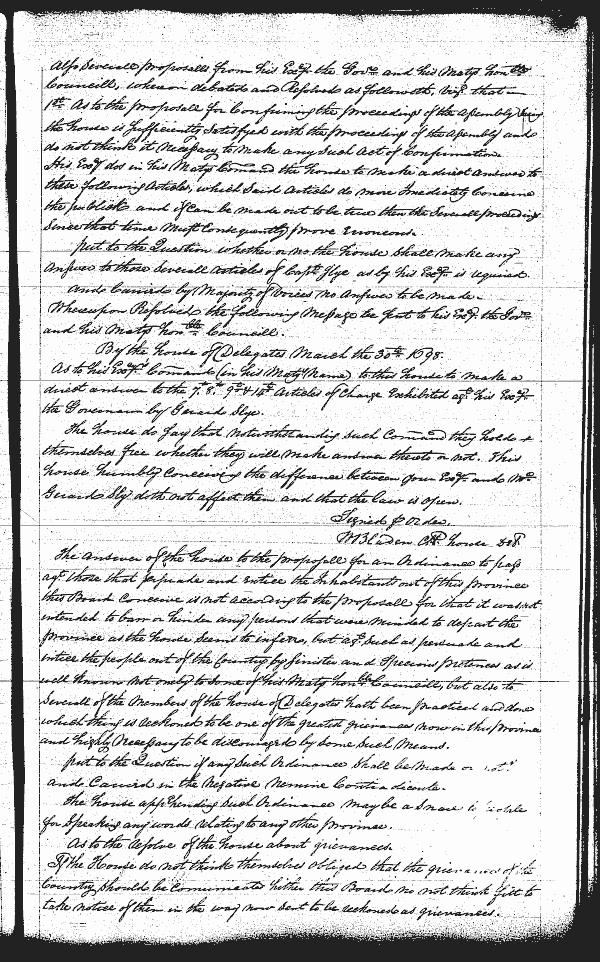 Also Severall proposalls from his Exc.y the Gov.r and his Maty's hon.ble
Councill, whereon debated and Resolved as followeth, viz.t that —
1.st As to the proposall for Confirming the proceedings of the Assembly
the house is sufficiently satisfyed with the proceedings of the Assembly and
do not think it Necessary to make any Such Act of Confirmation
His Exc.y dos in his Maty's Comand the house to make a direct Answer to
these following Articles, which Said Articles do more Imediately Concerne
the publick and if Can be made out to be true then the Severall proceedings
Since that time Must Consequently prove Erroneous.
put to the Question whether or no the house Shall make any
Answer to those Severall Articles of Capt. Slye as by his Exc.y is required.
And Carried by Majority of Voices no Answer to be made.
Whereupon Resolved the following Message be put to his Exc.y the Gov.r
and his Maty's Hon.ble Councill.
By the house of Delegates March the 30.th 1698.
As to his Exc.ys Comands (in his Maty's Name) to this house to make a
direct answer to the 7.th 8.th 9.th & 10.th Articles of Charge Exhibited ag.t his Exc.y
the Governour by Gerard Slye.
The house do say that notwithstanding such Comand they hold
themselves free whether they will make answer thereto or not. This
house humbly Conceiving the difference between your Exc.y and M.r
Gerard Sly doth not affect them and that the Law is open.
Signed p Order.
W Bladen Clk. house Del
The Answer of the house to the proposall for an Ordinance to pass
ag.t those that perswade and entice the Inhabitants out of this Province
this Board Conceive is not according to the proposall for that it was not
intended to barr or hinder any persons that were minded to depart the
Province as the house seems to inferr, but ag.t Such as persuade and
intice the people out of the Country by sinister and Specious pretences as is
well known not only to some of his Maty's hon.ble Councill, but also to
Severall of the Members of the house of Delegates hath been practiced and done
which thing is reckoned to be one of the greatest grievances now in this Province
and highly Necessary to be discouraged by some such Means.
put to the Question if any Such Ordinance Shall be made or not
and Carried in the Negative Nemine Contradicente.
The house apprehending Such Ordinance may be a Snare to people
for Speaking any words relating to any other Province.
As to the resolve of the house about grievances.
If the House do not think themselves obliged that the grievances of the
Country should be Comunicated hither this Board no not think fitt to
take notice of them in the way now sent to be reckoned as grievances.